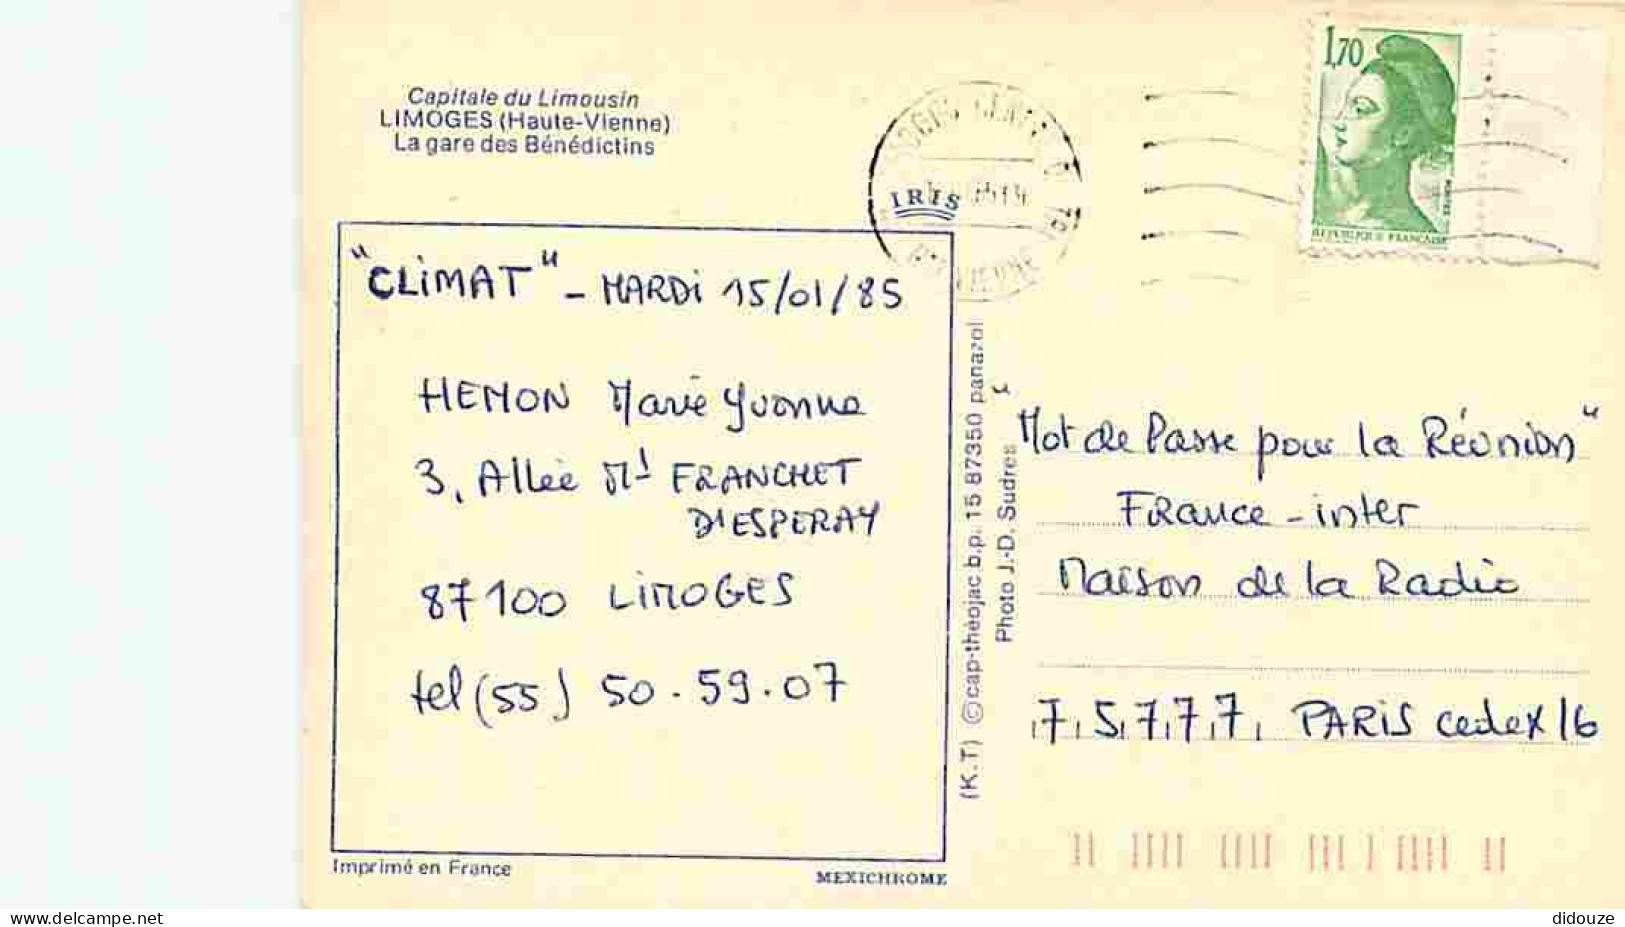 Capitale du Limousin
LIMOGES (Haute-Vienne)
La gare des Bénédictins
1,70
POSTES
REPUBLIQUE FRANÇAISE
IRIS
"CLiMAT" - MARDi 15/01/85
HEMON Marie Yvonne
3, Allée Ml FRANCHET
D'ESPERAY
87100 LiMOGES
tel (55) 50.59.07
(K.T) ©cap-théojac b.p. 15 87350 panazol
Photo J.-D. Sudres
"Mot de Passe pour la Réunion"
France-inter
Maison de la Radio
75777 PARiS cedex 16
Imprimé en France
MEXICHROME
www.delcampe.net
didouze